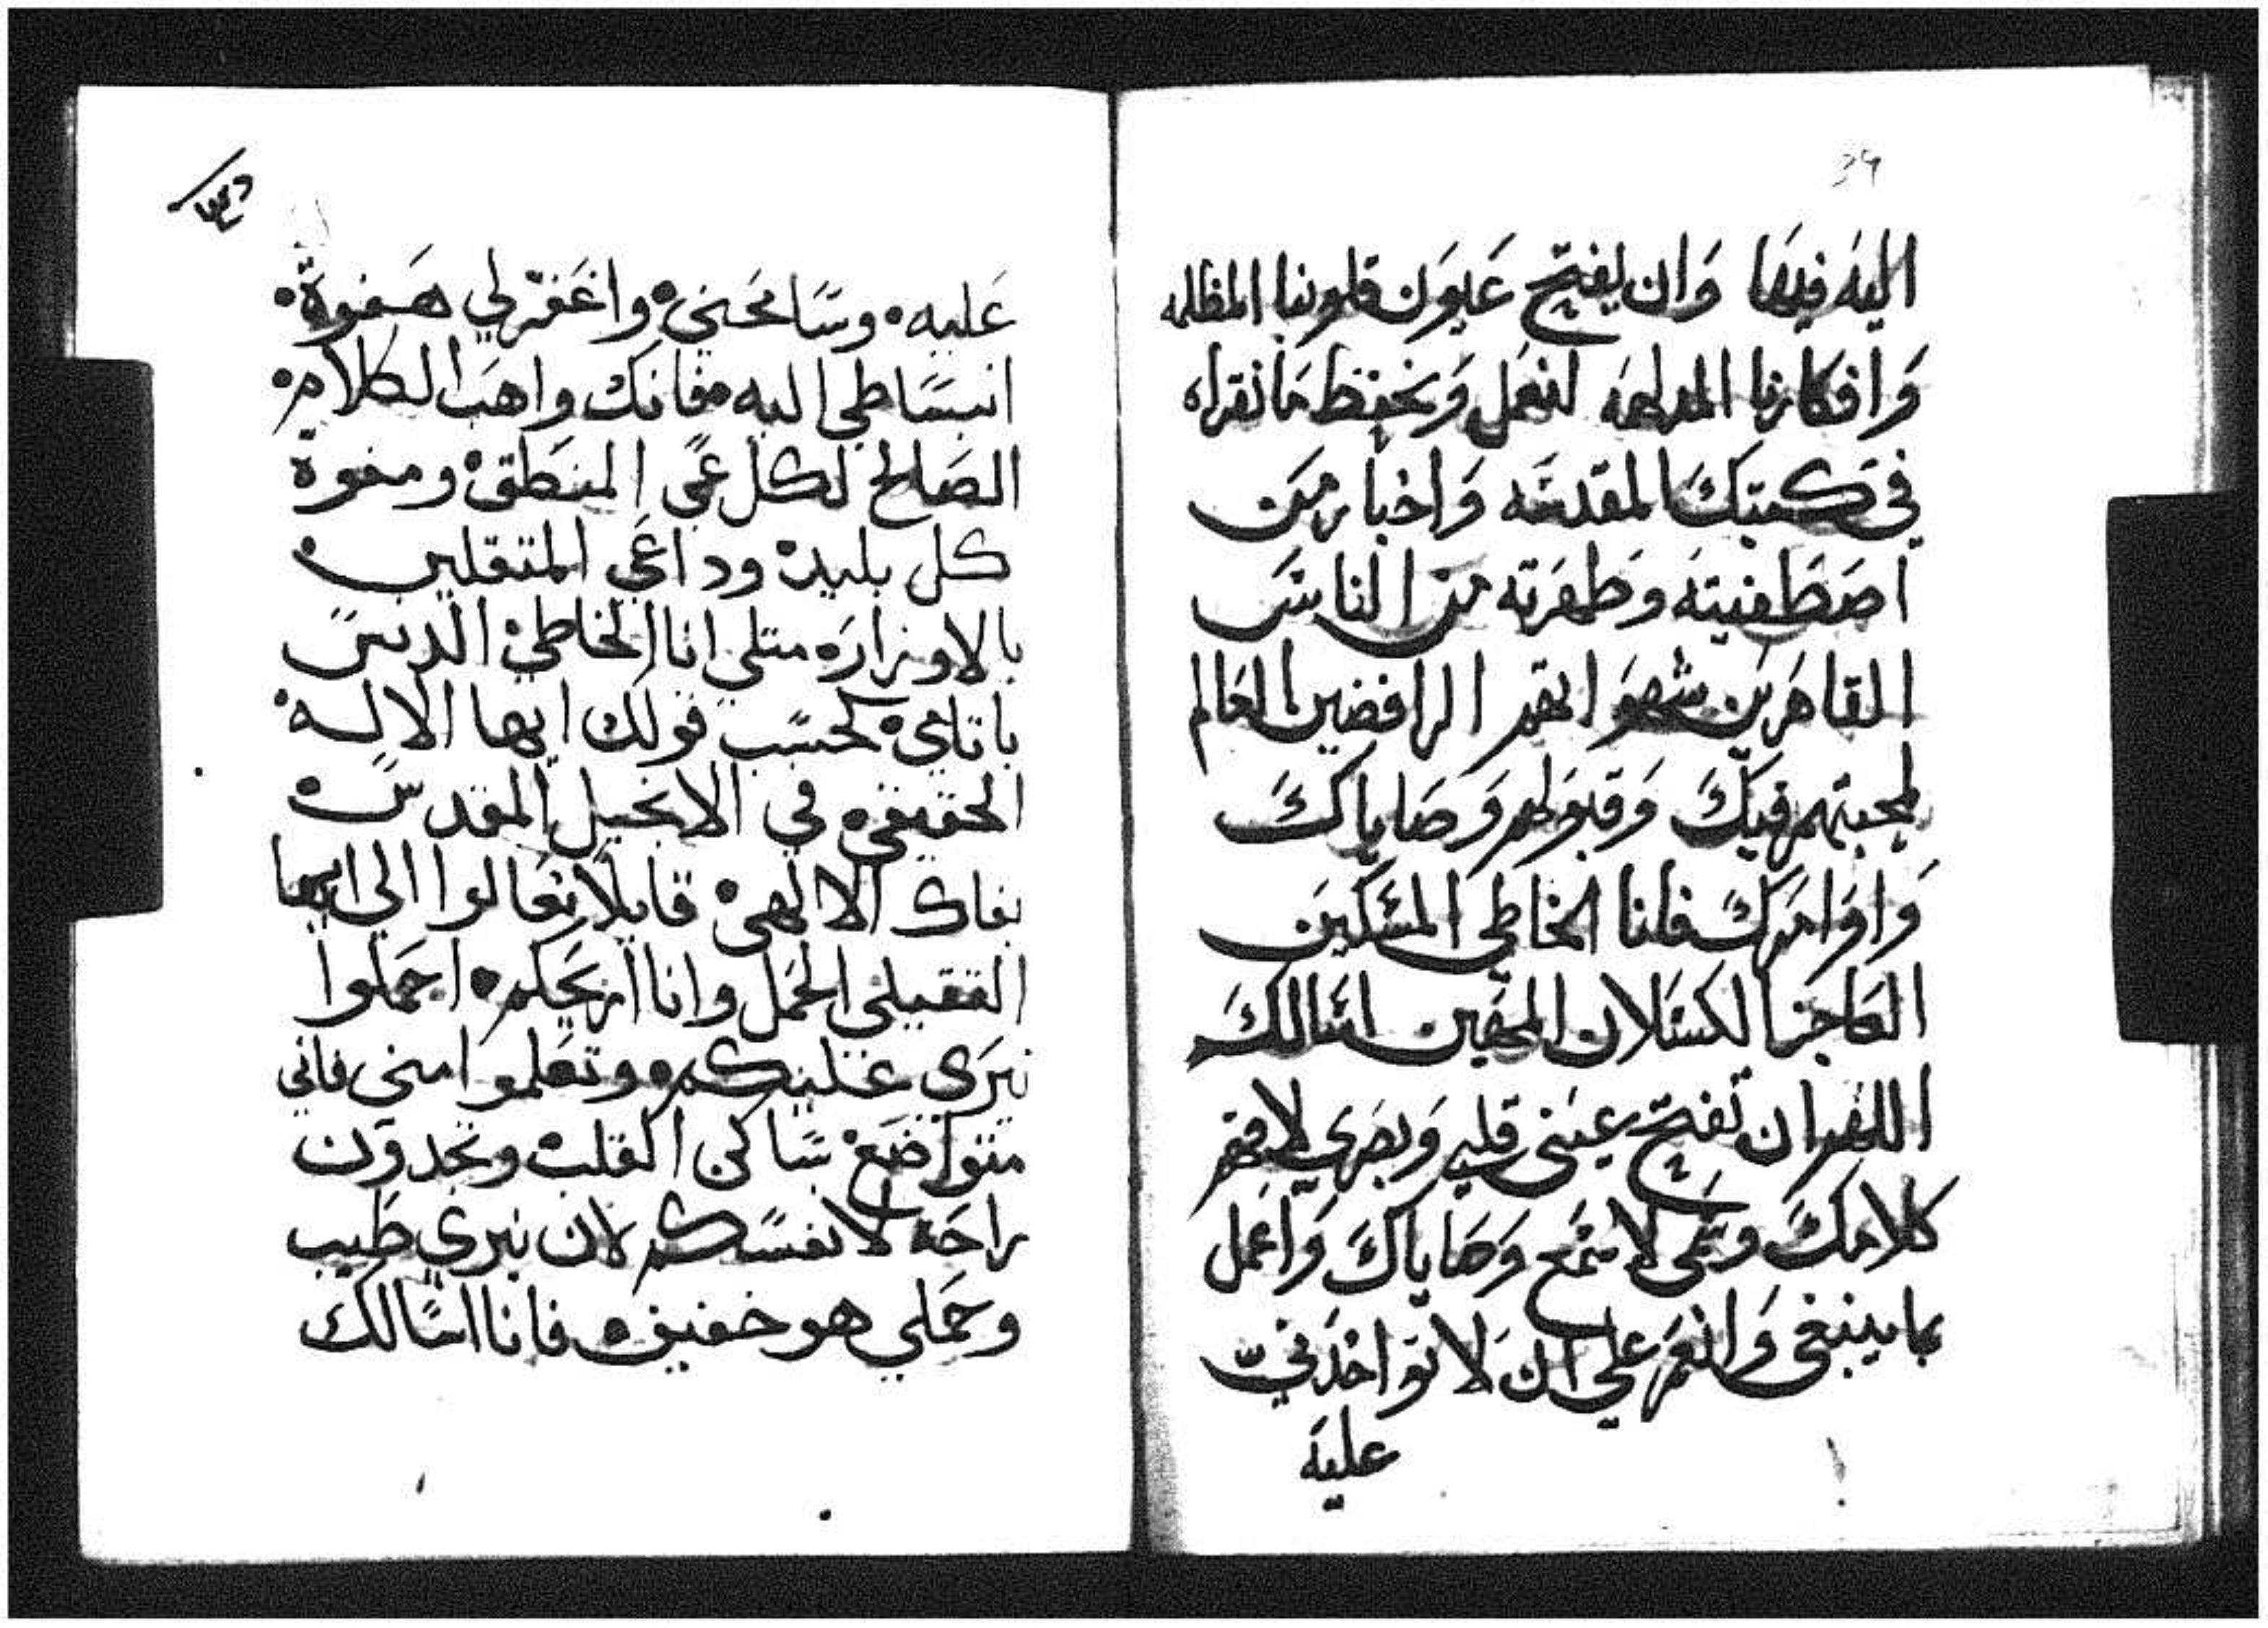 34
اليه فيها وان يفتح عيون قلوبنا المظلمه
وافكارنا المدلهمه لنعمل ونحفظ ما نقراه
في كتبك المقدسه واخبار من
اصطفيته وطهرته من الناس
القاهرين شهواتهم الرافضين العالم
لمحبتهم فيك وقبولهم وصاياك
واوامرك فانا الخاطي المسكين
العاجز الكسلان المهين اسالك
اللهم ان تفتح عيني قلبي وبصري لافهم
كلامك وسمعي لاسمع وصاياك واعمل
بما ينبغي وانعم علي انك لا تواخدني
عليه
عليه وسامحني واغفر لي هفوة
انبساطي اليه فانك واهب الكلام
الصالح لكل عي المنطق ومفوه
كل بليد وداعي المتقلين
بالاوزار متلي انا الخاطي الدنس
باتامي كحسب قولك ايها الاله
الحقيقي في الانجيل المقدس
بفاك الالهي قايلا تعالوا الي ايها
الثقيلي الحمل وانا اريحكم احملوا
نيري عليكم وتعلموا مني فاني
متواضع ساكن القلب وتجدون
راحة لانفسكم لان نيري طيب
وحملي هو خفيف فانا اسالك